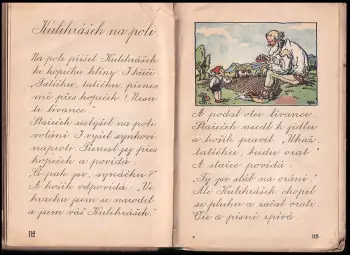 Kulihrášek na poli.
Na poli přišel Kulihrášek
ke kopečku hlíny. I křičí:
"Tatíčku, tatíčku, přenes
mě přes kopeček! Nesu
ti lívance."
Stařeček uslyšel na poli
volání. I vyšel synkovi
naproti. Přenesl jej přes
kopeček a povídá:
"Co pak jsi, synáčku?"
A hošek odpovídá: "Ve
hrachu jsem se narodil
a jsem váš Kulihrášek."
114
A podal otci lívance.
Stařeček usedl k jídlu
a hošík pravil: "Ukaž,
tatíčku, budu orat."
A stařec povídá:
"Ty jsi sláb na orání."
Ale Kulihrášek chopil
se pluhu a začal orat.
Oře a písně zpívá.
115